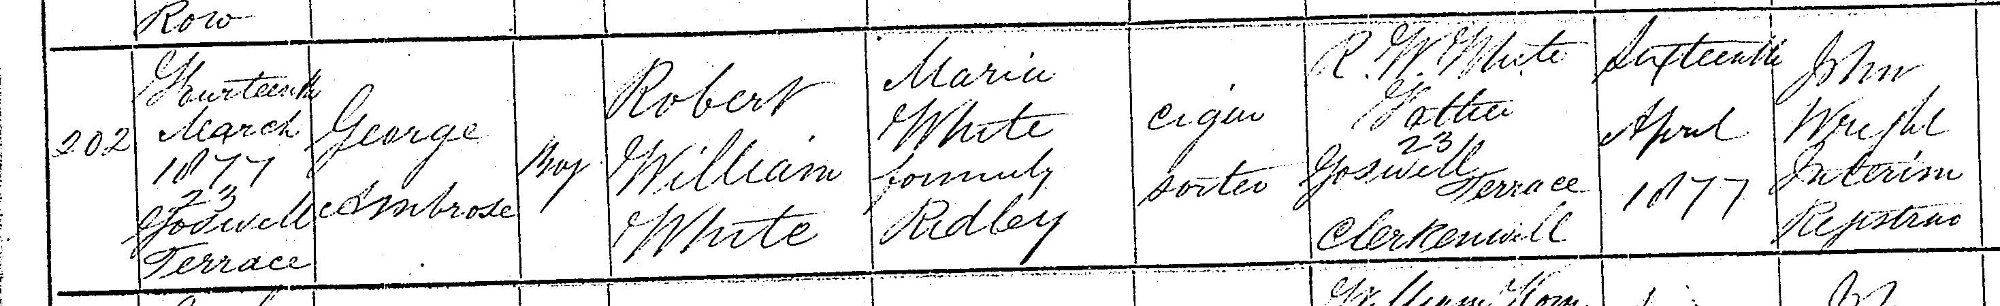 Row
202
Fourteenth
March
1877
23
Goswell
Terrace
George
Ambrose
Boy
Robert
William
White
Maria
White
formerly
Ridley
Cigar
sorter
R. W. White
Father
23
Goswell
Terrace
Clerkenwell
Sixteenth
April
1877
John
Wright
Interim
Registrar
William